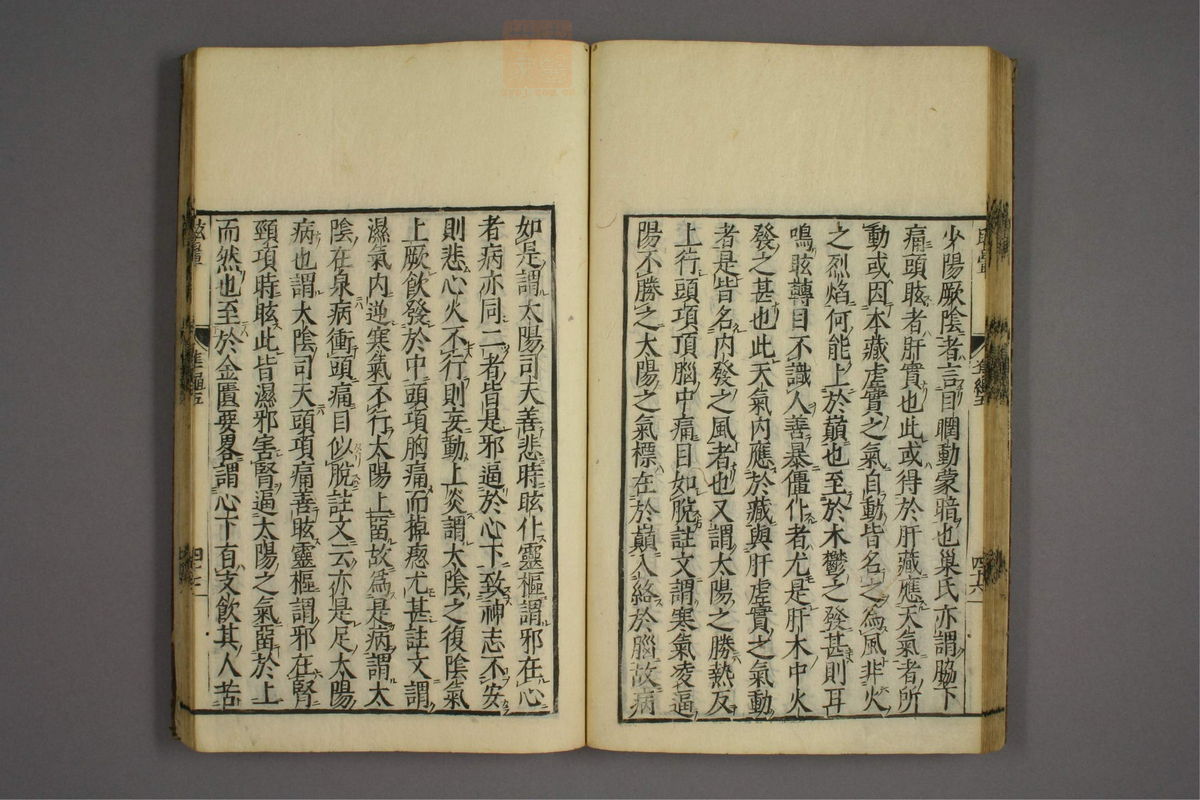 少陽厥陰者言目瞤動蒙暗也巢氏亦謂脇下
痛頭眩者肝實也此或得於肝藏應天氣者所
動或因本藏虛實之氣自動皆名之為風非火
之烈焰何能上於巔也至於木鬱之發甚則耳
鳴眩轉目不識人善暴僵仆者尤是肝木中火
發之甚也此天氣内應於藏與肝虛實之氣動
者是皆名内發之風者也又謂太陽之勝熱反
上行頭項頂腦中痛目如脫註文謂寒氣凌逼
陽不勝之太陽之氣標在於巔入絡於腦故病
如是謂太陽司天善悲時眩仆靈樞謂邪在心
者病亦同二者皆是邪逼於心下致神志不安
則悲心火不行則妄動上炎謂太陰之復陰氣
上厥飲發於中頭項胸痛而掉瘛尤甚註文謂
濕氣内逆寒氣不行太陽上留故為是病謂太
陰在泉病衝頭痛目似脫註文云亦是足太陽
病也謂太陰司天頭項痛善眩靈樞謂邪在腎
頸項時眩此皆濕邪害腎逼太陽之氣留於上
而然也至於金匱要畧謂心下百支飲其人苦
眩暈
準繩五